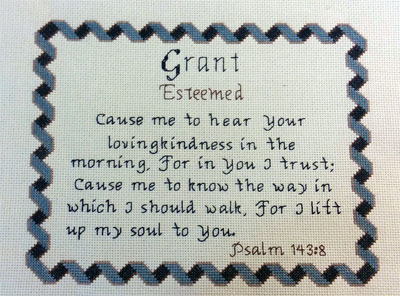 Grant
Esteemed
Cause me to hear Your
lovingkindness in the
morning, For in You I trust;
Cause me to know the way in
which I should walk, For I lift
up my soul to You.
Psalm 143:8